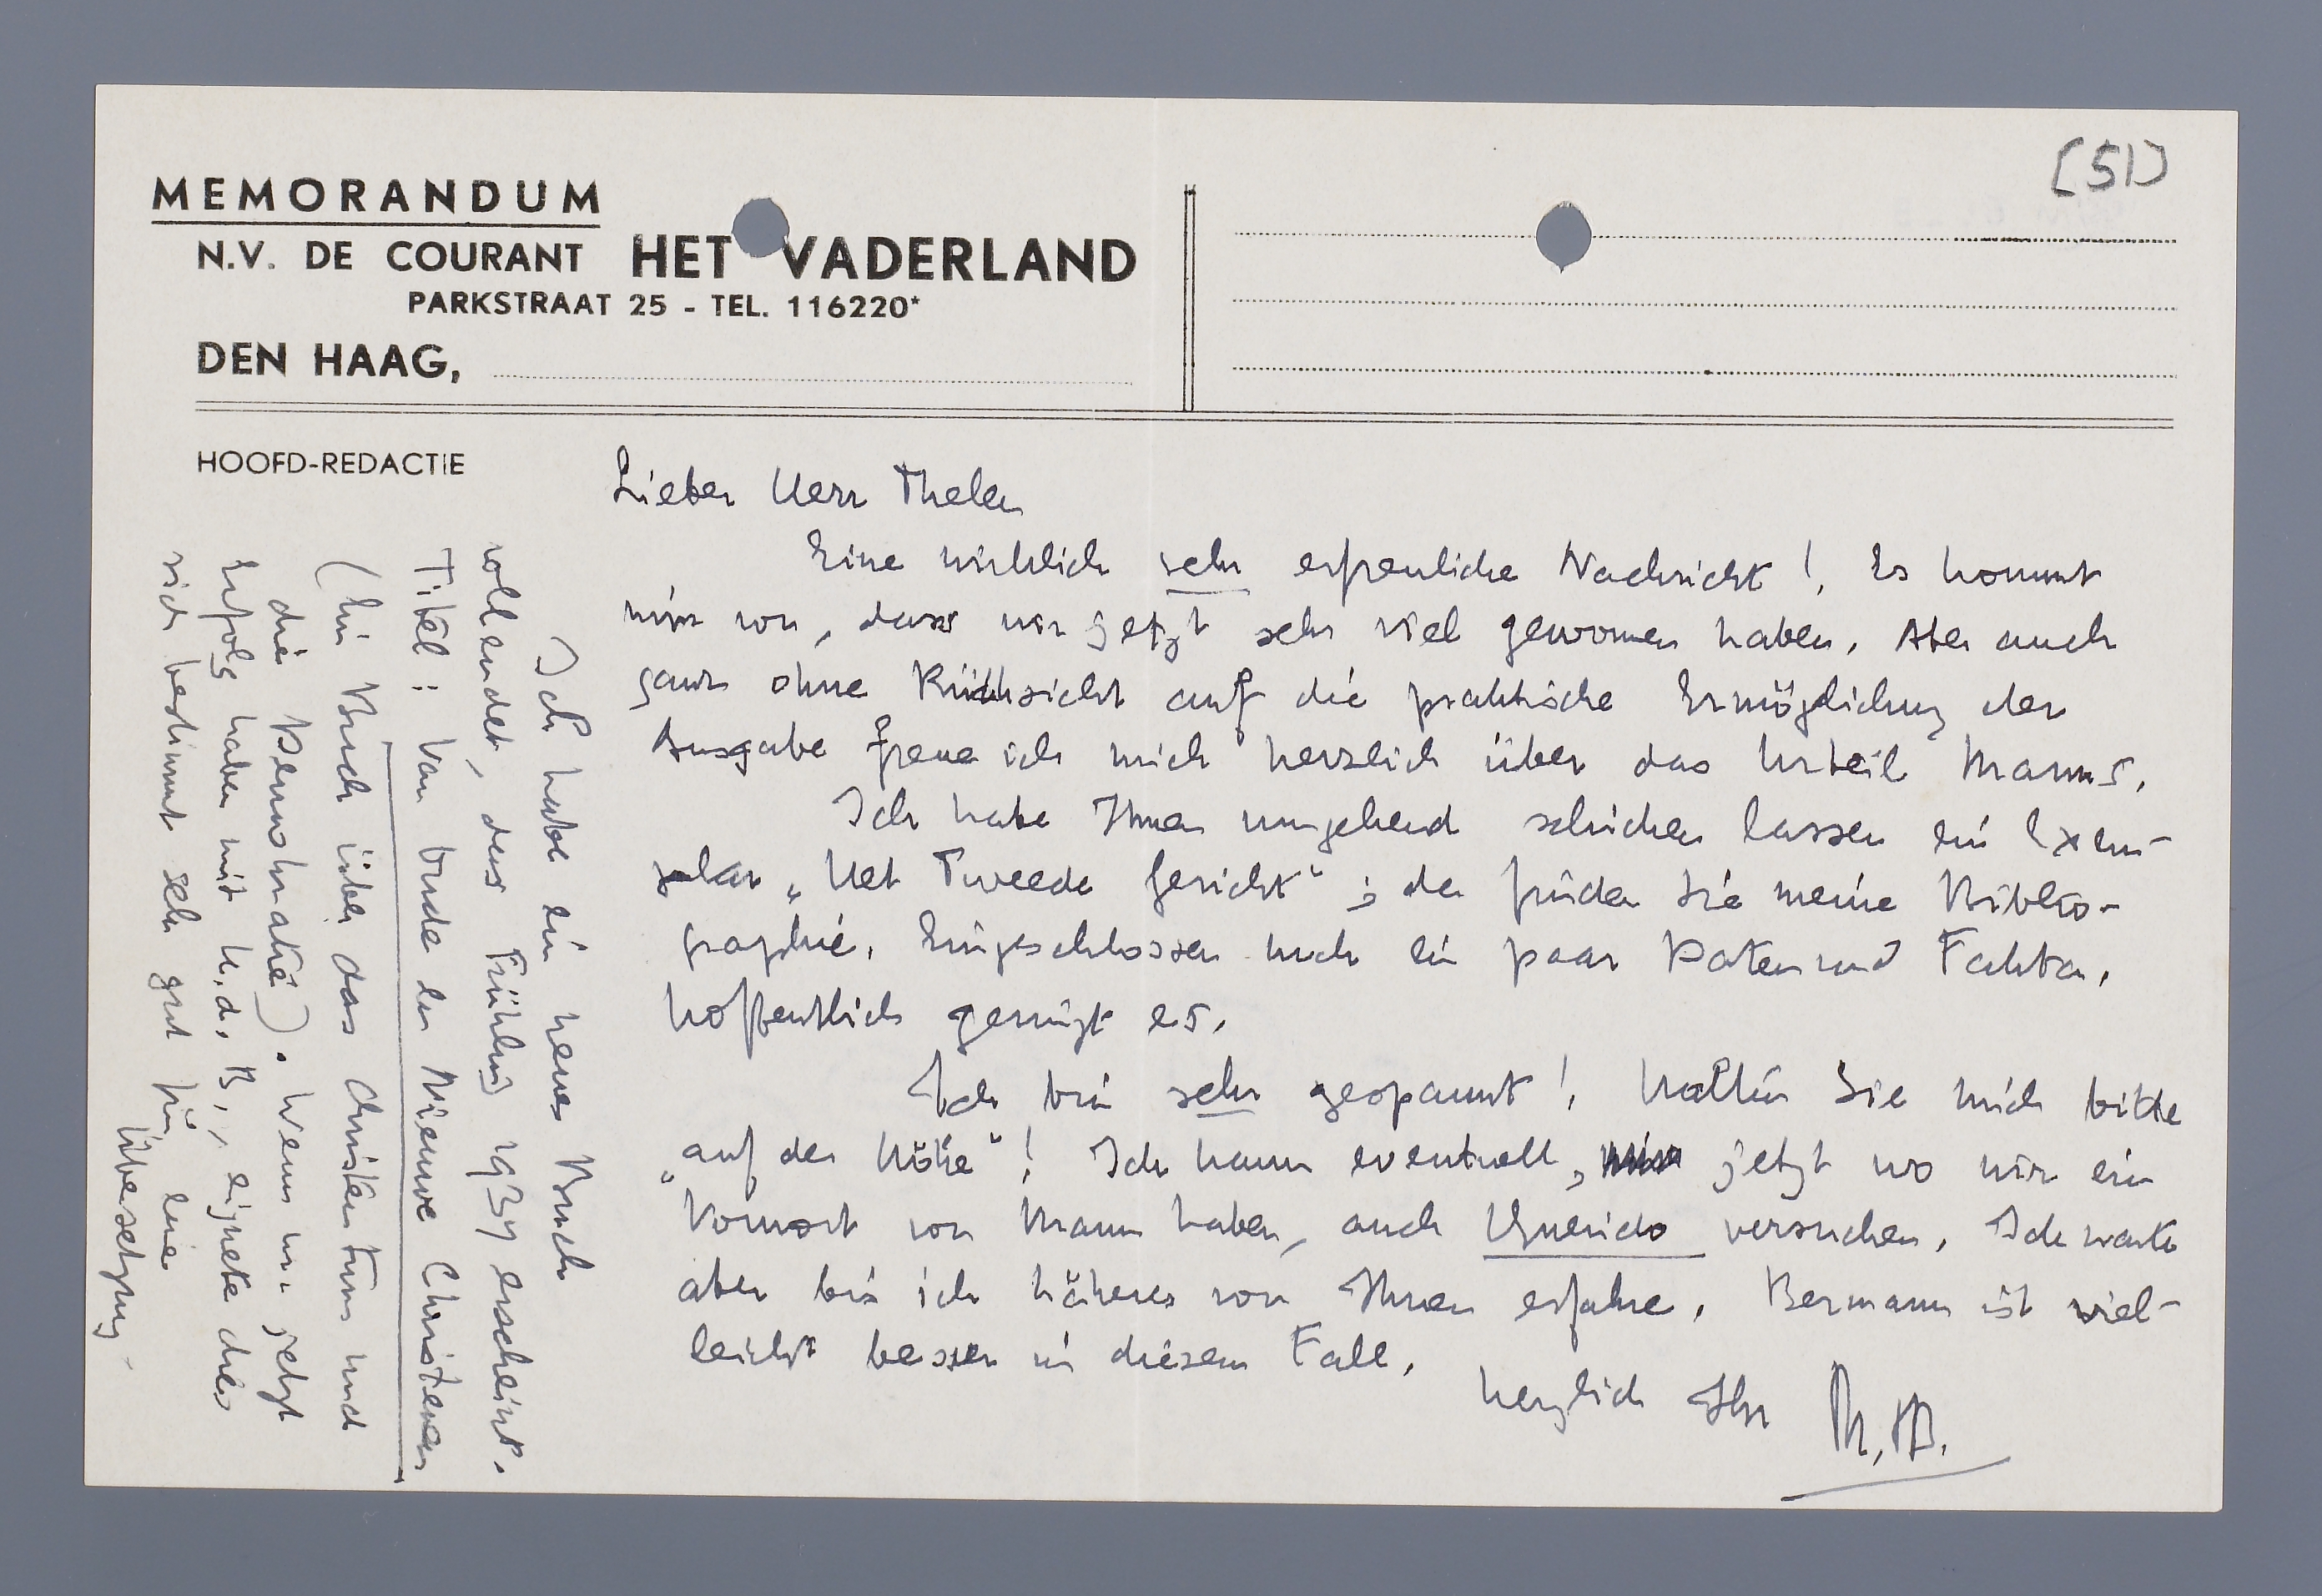 [51]
MEMORANDUM
N.V. DE COURANT HET VADERLAND
PARKSTRAAT 25 - TEL. 116220*
DEN HAAG,
HOOFD-REDACTIE
Lieber Herr Thelen
Eine wirklich sehr erfreuliche Nachricht! Es kommt
mir vor, dass wir jetzt sehr viel gewonnen haben. Aber auch
ganz ohne Rücksicht auf die praktische Ermöglichung der
Ausgabe freue ich mich herzlich über das Urteil Manns.
Ich habe Ihnen umgehend schicken lassen ein Exem-
plar „Het Tweede Gezicht"; da finden Sie meine Biblio-
graphie. Eingeschlossen noch ein paar Daten und Fakta.
hoffentlich genügt es.
Ich bin sehr gespannt! Halten Sie mich bitte
„auf der Höhe"! Ich kann eventuell, jetzt wo wir ein
Vorwort von Mann haben, auch Querido versuchen. Ich warte
aber bis ich näheres von Ihnen erfahre. Bermann ist viel-
leicht besser in diesem Fall.
herzlich Ihr M.t.B.
Ich habe ein neues Buch
vollendet, das Frühling 1937 erscheint.
Titel: Van Oude en Nieuwe Christenen
(Ein Buch über das Christentum und
die Demokratie). Wenn wir jetzt
Erfolg haben mit H.d.B., eignete dies
sich bestimmt sehr gut für eine
Übersetzung.